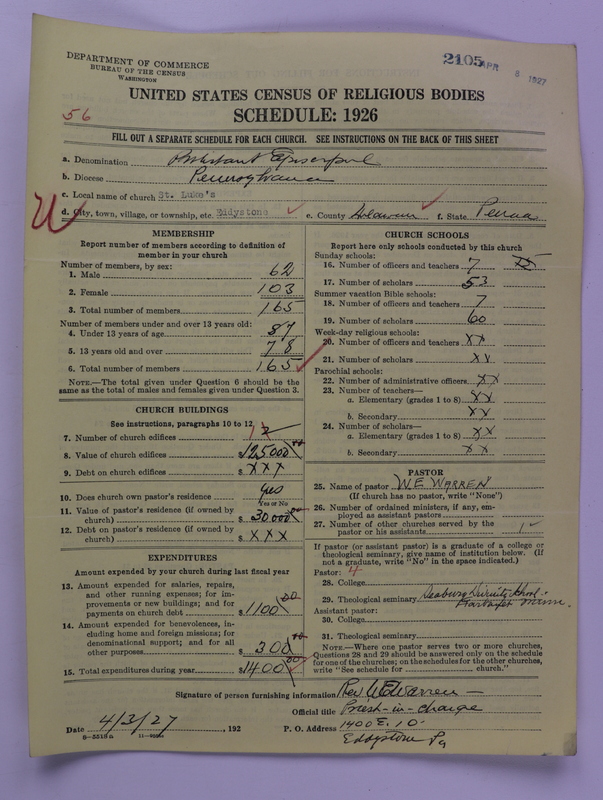 DEPARTMENT OF COMMERCE
BUREAU OF THE CENSUS
WASHINGTON
2105 APR 8 1927
UNITED STATES CENSUS OF RELIGIOUS BODIES
SCHEDULE: 1926
56
FILL OUT A SEPARATE SCHEDULE FOR EACH CHURCH. SEE INSTRUCTIONS ON THE BACK OF THIS SHEET
a. Denomination Protestant Episcopal
b. Diocese Pennsylvania
c. Local name of church St. Luke's
d. City, town, village, or township, etc. Eddystone e. County Delaware f. State Penna
MEMBERSHIP
Report number of members according to definition of
member in your church
Number of members, by sex:
1. Male 62
2. Female 103
3. Total number of members 165
Number of members under and over 13 years old:
4. Under 13 years of age 87
5. 13 years old and over 78
6. Total number of members 165
NOTE.—The total given under Question 6 should be the
same as the total of males and females given under Question 3.
CHURCH BUILDINGS
See instructions, paragraphs 10 to 12
7. Number of church edifices 1
8. Value of church edifices $ 125000 00
9. Debt on church edifices $ XXX
10. Does church own pastor's residence yes
Yes or No
11. Value of pastor's residence (if owned by
church) $ 30000 00
12. Debt on pastor's residence (if owned by
church) $ XXX
EXPENDITURES
Amount expended by your church during last fiscal year
13. Amount expended for salaries, repairs,
and other running expenses; for im-
provements or new buildings; and for
payments on church debt $ 1100 00
14. Amount expended for benevolences, in-
cluding home and foreign missions; for
denominational support; and for all
other purposes $ 300 00
15. Total expenditures during year $ 1400 00
CHURCH SCHOOLS
Report here only schools conducted by this church
Sunday schools:
16. Number of officers and teachers 7
17. Number of scholars 53
Summer vacation Bible schools:
18. Number of officers and teachers 7
19. Number of scholars 60
Week-day religious schools:
20. Number of officers and teachers XX
21. Number of scholars XX
Parochial schools:
22. Number of administrative officers XX
23. Number of teachers—
a. Elementary (grades 1 to 8) XX
b. Secondary XX
24. Number of scholars—
a. Elementary (grades 1 to 8) XX
b. Secondary XX
PASTOR
25. Name of pastor W.E. WARREN
(If church has no pastor, write "None")
26. Number of ordained ministers, if any, em-
ployed as assistant pastors
27. Number of other churches served by the
pastor or his assistants 1
If pastor (or assistant pastor) is a graduate of a college or
theological seminary, give name of institution below. (If
not a graduate, write "No" in the space indicated.)
Pastor: 4
28. College
29. Theological seminary Seabury Divinity School
Faribault Minn.
Assistant pastor:
30. College
31. Theological seminary
NOTE.—Where one pastor serves two or more churches,
Questions 28 and 29 should be answered only on the schedule
for one of the churches; on the schedules for the other churches,
write "See schedule for church."
Signature of person furnishing information Rev. W.E. Warren
Official title Priest-in-charge
Date 4/3/27, 192 P. O. Address 1400 E. 10
Eddystone Pa
8—5518a